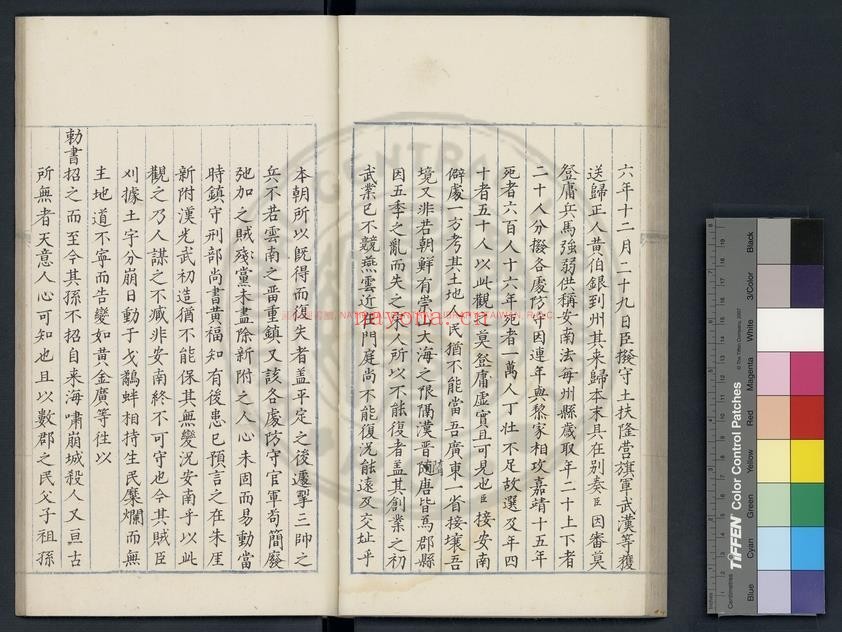 六年十二月二十九日臣撥守土扶隆营旗軍武漢等獲
送歸正人黄伯銀到州其来歸本末具在别奏臣因審莫
登庸兵馬強弱供稱安南法每州縣歲取年二十上下者
二十人分撥各處防守因連年與黎家相攻嘉靖十五年
死者六百人十六年死者一萬人丁壮不足故選及年四
十者五十人以此觀之莫登庸虚實且可見也臣按安南
僻處一方考其土地人民猶不能當吾廣東一省接壤吾
境又非若朝鮮有崇山大海之限隔漢晉隋唐皆爲郡縣
因五季之亂而失之宋人所以不能復者盖其創業之初
武業已不競燕雲近在門庭尚不能復况能遠及交址乎
本朝所以既得而復失者盖平定之後遽掣三帥之
兵不若雲南之晋重鎮又該各處防守官軍苟簡廢
弛加之賊殘黨未盡除新附之人心未固而易動當
時鎮守刑部尚書黄福知有後患已預言之在朱厓
新附漢光武初造猶不能保其無變况安南乎以此
觀之乃人謀之不臧非安南終不可守也今其賊臣
刈據土宇分崩日動干戈鷸蚌相持生民糜爛而無
主地道不寧而告變如黄金廣等徃以
勅書招之而至今其孫不招自来海嘯崩城殺人又亘古
所無者天意人心可知也且以數郡之民父子祖孫
nayona.cn
TIFFEN Color Control Patches
© The Tiffen Company, 2007
Centimetres
Blue
Cyan
Green
Yellow
Red
Magenta
White
3/Color
Black